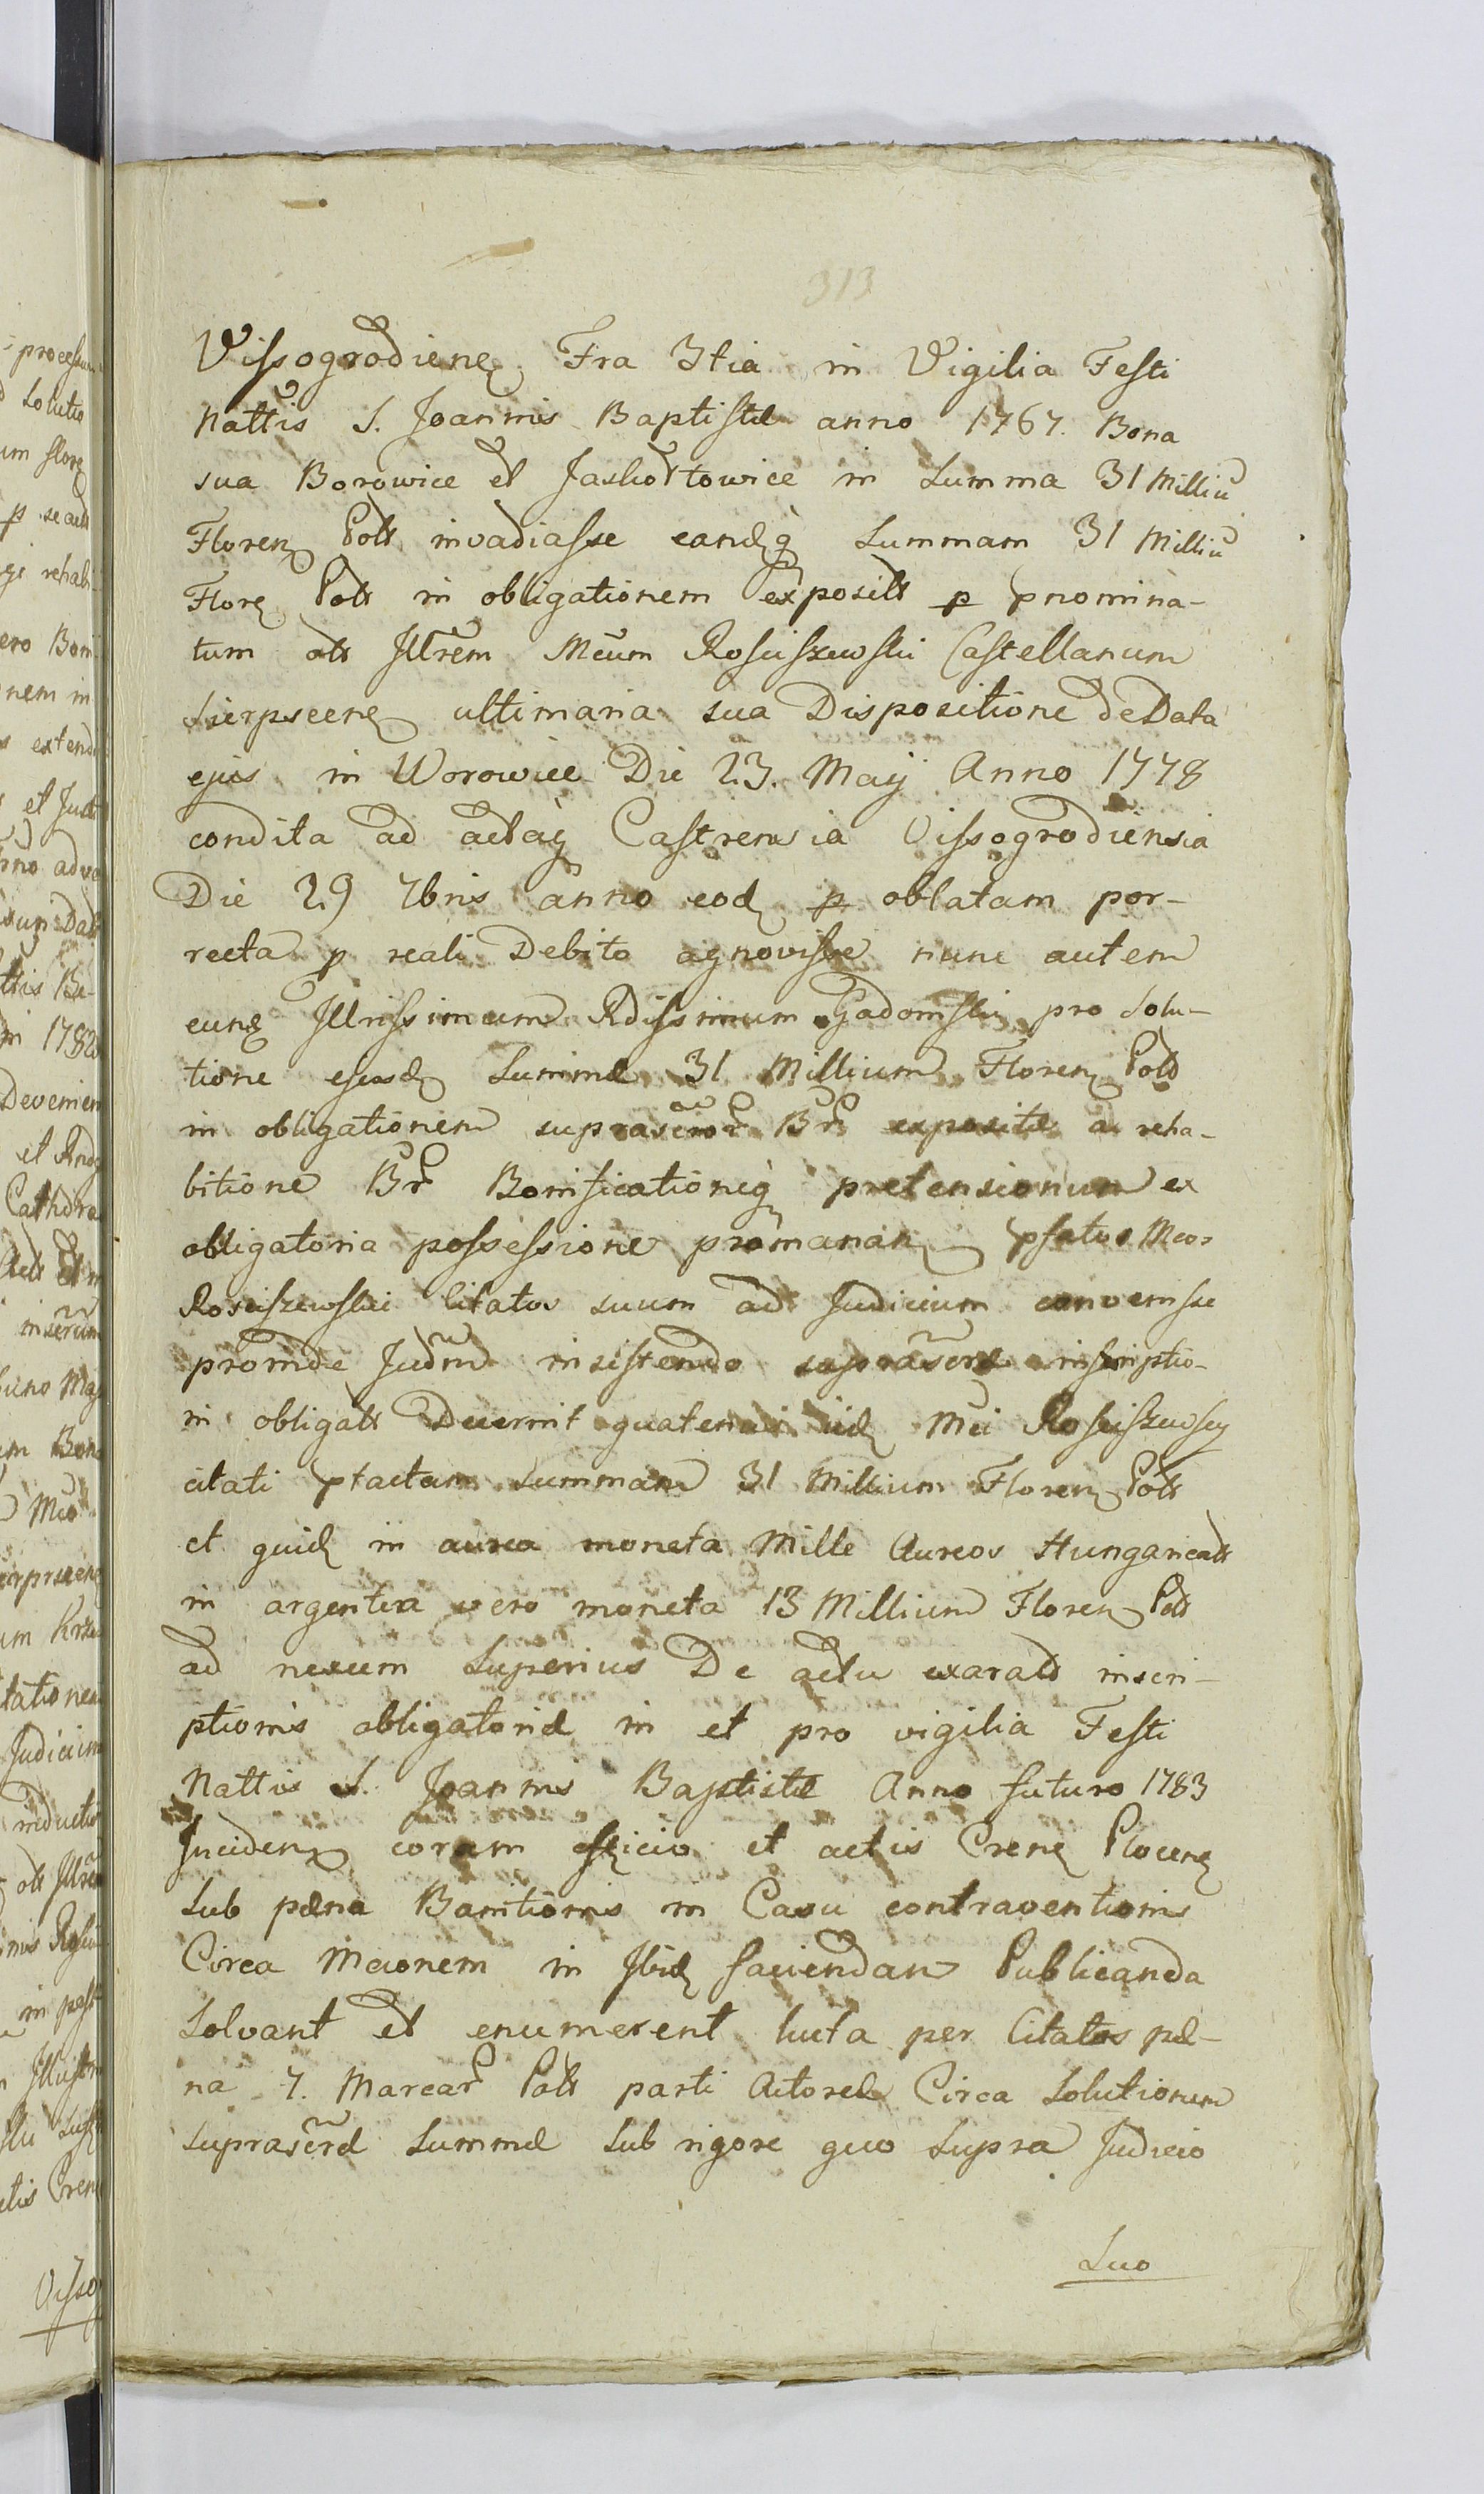 313
Vissogrodiene Fra 3tia in Vigilia Festi
Nattis S. Joannis Baptistæ anno 1767. Bona
sua Borowice et Jaskołtowice in Summa 31 Milliu
Floren Poll invadiasse eandq Summam 31 Milliu
Flore Poll in obligationem expositt p pnomina-
tum olt Jllrem Mcum Rosciszewski Castellanum
Sierpscene ultimaria sua Dispositione de Data
ejus in Worowice Die 23. Maÿ Anno 1778
condita ad actaq Castrensia Vissogrodiensia
Die 29 7bris anno eod p oblatam por-
recta p reali Debito agnovisse nunc autem
eune Jllrissimum Rdissimum Gadomski pro Solu-
tione ejusd Summæ 31 Millium Floren Poll
in obligationem suprascror Br expositæ a reha-
bitione Br Bonificationeq pretensionum ex
obligatoria possessione promanan psatos Mcos
Rosciszewskie Citatos suum ad Judicium convenisse
proinde Judm insistendo suprascræ inscriptio-
ni obligatt Decernit quatenus iid Mci Rosciszewscy
citati ptactam Summam 31 Millium Floren Poll
et quid in aurea moneta Mille Aureos Hungaricall
in argentea vero moneta 13 Millium Floren Poll
ad nexum Superius De actu exaratt inscri-
ptionis obligatoriæ in et pro vigilia Festi
Nattis S. Joannis Baptistæ Anno futuro 1783
Inciden coram officio et actis Crene Plocene
Sub pœna Banitionis in Casu contraventionis
Circa Mcionem in Jbid faciendam Publicanda
Solvant et enumerent luta per Citatos pœ-
na 7. Marcar Poll parti Actoreæ Circa Solutionem
suprascræ Summæ Sub rigore quo Supra Judicio
Suo